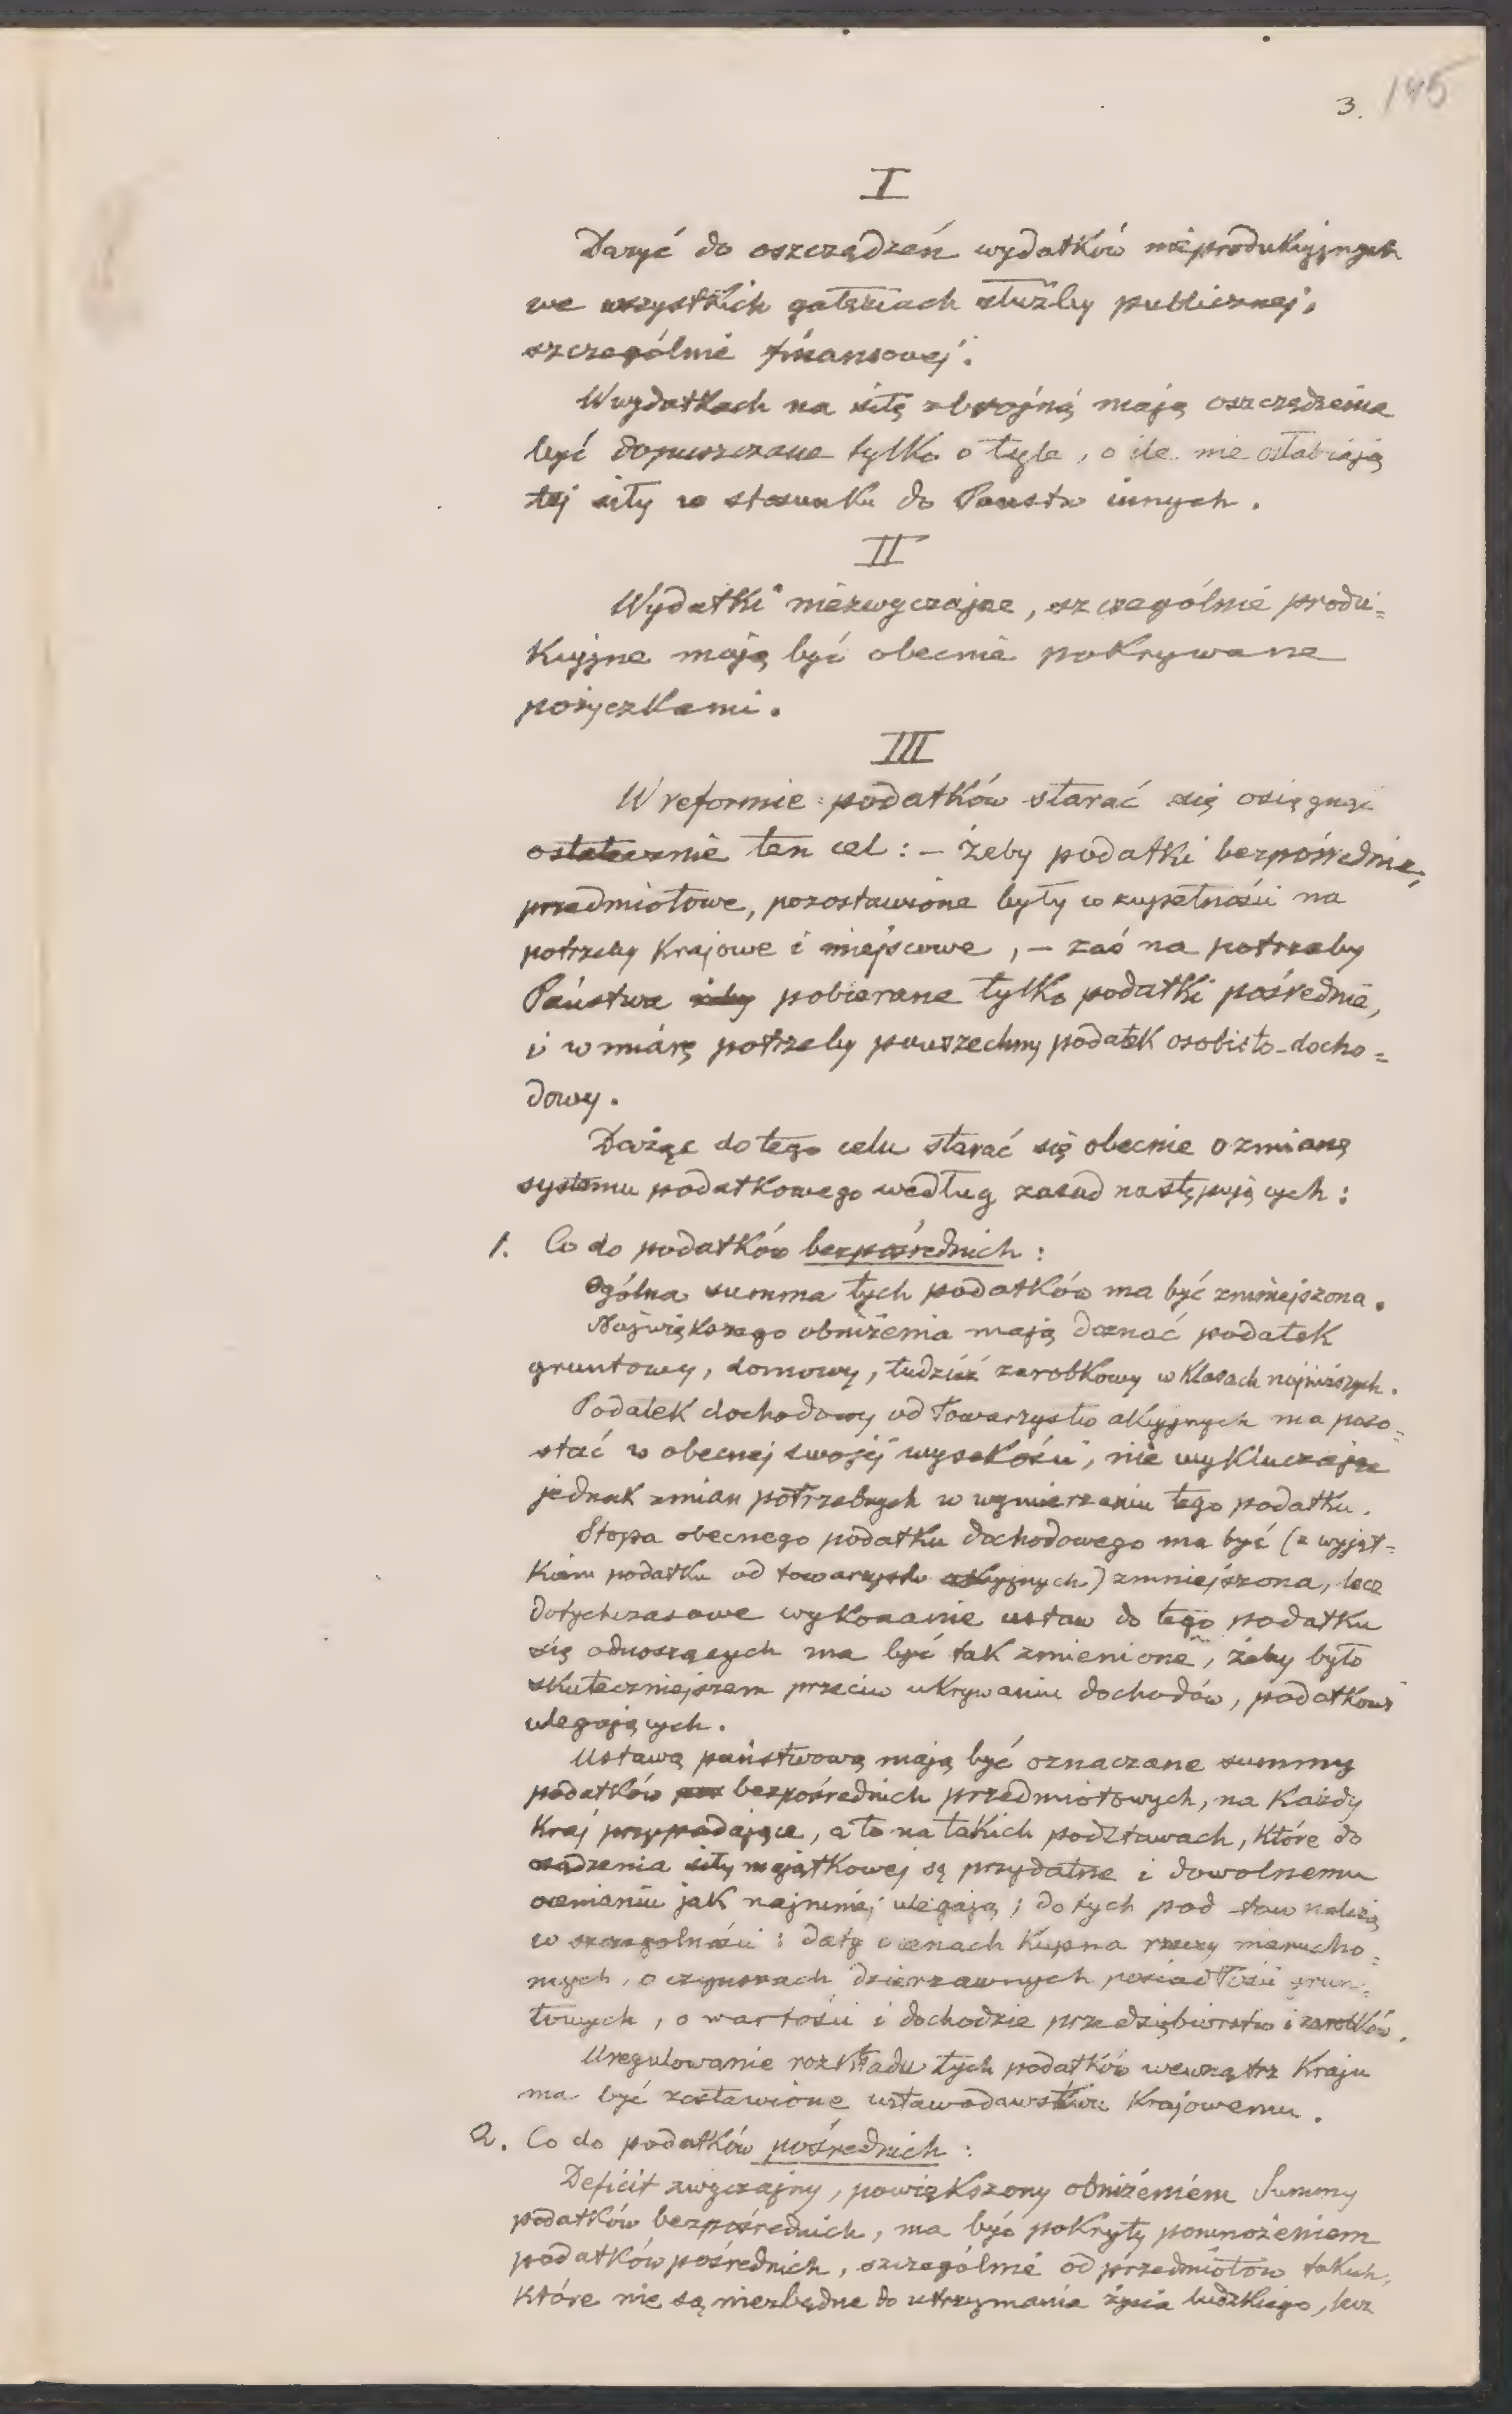 3. 145
I
Dążyć do oszczędzeń wydatków nieprodukcyjnych
we wszystkich gałęziach służby publicznej,
szczególnie finansowej.
W wydatkach na siłę zbrojną mają oszczędzenia
być dopuszczane tylko o tyle, o ile nie osłabiają
tej siły w stosunku do Państw innych.
II
Wydatki niezwyczajne, szczególnie produ=
kcyjne mają być obecnie pokrywane
pożyczkami.
III
W reformie podatków starać się osięgnąć
ostatecznie ten cel: – żeby podatki bezpośrednie,
przedmiotowe, pozostawione były w zupełności na
potrzeby krajowe i miejscowe, – zaś na potrzeby
Państwa żeby pobierane tylko podatki pośrednie,
i w miarę potrzeby powszechny podatek osobisto-docho=
dowy.
Dążąc do tego celu starać się obecnie o zmianę
systemu podatkowego według zasad następujących:
1. Co do podatków bezpośrednich:
Ogólna summa tych podatków ma być zmniejszona.
Największego obniżenia mają doznać podatek
gruntowy, domowy, tudzież zarobkowy w klasach najniższych.
Podatek dochodowy od towarzystw akcyjnych ma pozo=
stać w obecnej swojej wysokości, nie wykluczając
jednak zmian potrzebnych w wymierzaniu tego podatku.
Stopa obecnego podatku dochodowego ma być (z wyjąt=
kiem podatku od towarzystw akcyjnych) zmniejszona, lecz
dotychczasowe wykonanie ustaw do tego podatku
się odnoszących ma być tak zmienione, żeby było
skuteczniejszem przeciw ukrywaniu dochodów, podatkowi
ulegających.
Ustawą państwową mają być oznaczane summy
podatków bezpośrednich przedmiotowych, na każdy
kraj przypadające, a to na takich podstawach, które do
osądzenia siły majątkowej są przydatne i dowolnemu
ocenianiu jak najmniej ulegają; do tych pod staw należą
w szczególności: daty o cenach kupna rzeczy nierucho=
mych, o czynszach dzierżawnych posiadłości grun=
towych, o wartości i dochodzie przedsiębiorstw i zarobków.
Uregulowanie rozkładu tych podatków wewnątrz kraju
ma być zostawione ustawodawstwu krajowemu.
2. Co do podatków pośrednich:
Deficit zwyczajny, powiększony obniżeniem Summy
podatków bezpośrednich, ma być pokryty pomnożeniem
podatków pośrednich, szczególnie od przedmiotów takich,
które nie są niezbędne do utrzymania życia ludzkiego, lecz